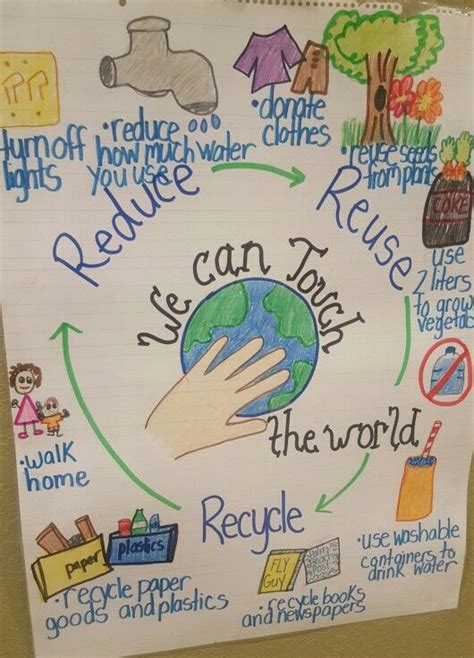 turn off
lights
• reduce
how much water
you use
• donate
clothes
• reuse seeds
from plants
Reduce
Reuse
COKE
use
2 liters
to grow
We can Touch
the world
• walk
home
Recycle
• use washable
containers to
drink water
paper
plastics
• recycle paper
goods and plastics
FLY
GUY
• recycle books
and newspapers